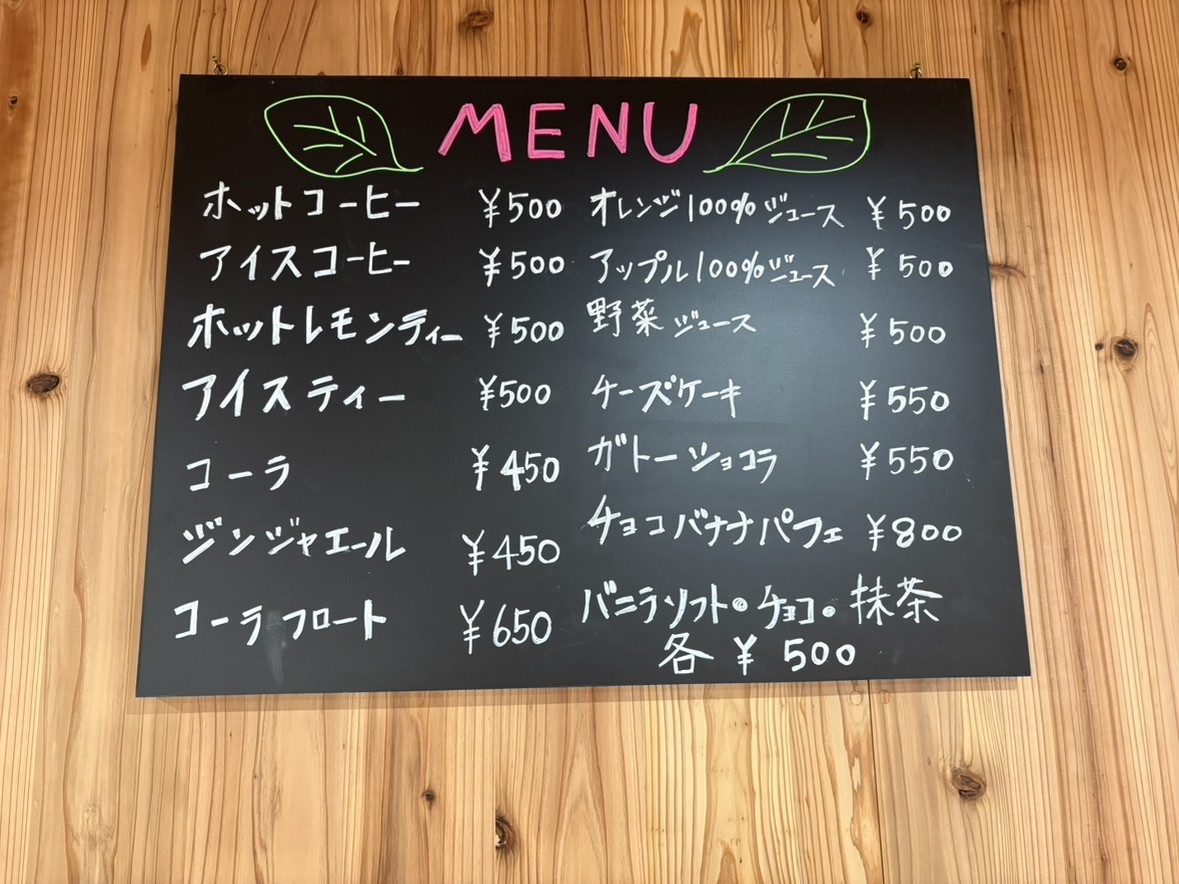 MENU
ホットコーヒー ¥500
アイスコーヒー ¥500
ホットレモンティー ¥500
アイスティー ¥500
コーラ ¥450
ジンジャエール ¥450
コーラフロート ¥650
オレンジ100%ジュース ¥500
アップル100%ジュース ¥500
野菜ジュース ¥500
チーズケーキ ¥550
ガトーショコラ ¥550
チョコバナナパフェ ¥800
バニラソフト・チョコ・抹茶
各 ¥500